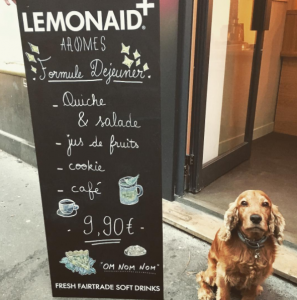 LEMONAID+
ARÔMES
Formule Déjeuner
- Quiche
& salade
- jus de fruits
- cookie
- café
- 9,90€ -
"OM NOM NOM"
FRESH FAIRTRADE SOFT DRINKS